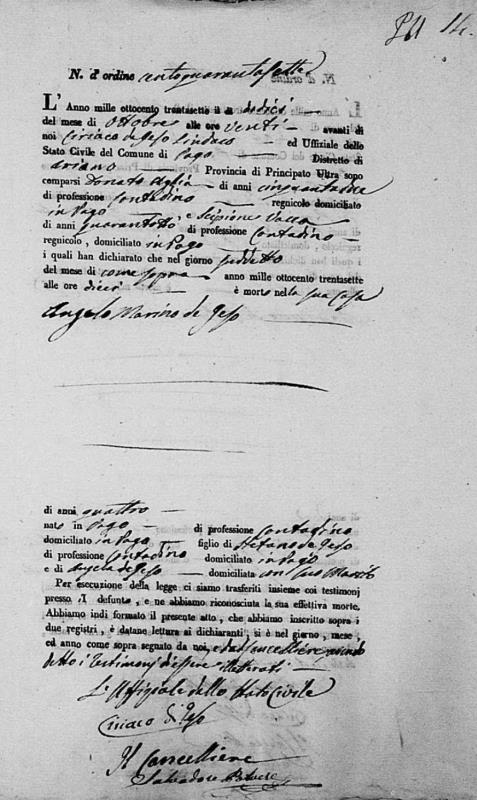 N. d'ordine centoquarantasette
L' Anno mille ottocento trentasette il dì dodici
del mese di Ottobre alle ore venti avanti di
noi Ciriaco de Geso Sindaco ed Uffiziale dello
Stato Civile del Comune di Pago Distretto di
Ariano Provincia di Principato Ultra sono
comparsi Donato Aglia di anni cinquantadue
di professione Contadino regnicolo domiciliato
in Pago, e Scipione Vacca
di anni quarantotto di professione Contadino
regnicolo, domiciliato in Pago
i quali han dichiarato che nel giorno suddetto
del mese di come sopra anno mille ottocento trentasette
alle ore dieci è morto nella sua casa
Angelo Marino de Geso
di anni quattro
nato in Pago di professione Contadino
domiciliato in Pago figlio di Stefano de Geso
di professione Contadino domiciliato in Pago
e di Angela de Geso domiciliata con suo Marito
Per esecuzione della legge ci siamo trasferiti insieme coi testimonj
presso il defunto, e ne abbiamo riconosciuta la sua effettiva morte.
Abbiamo indi formato il presente atto, che abbiamo inscritto sopra i
due registri, è datane lettura ai dichiaranti, si è nel giorno, mese,
ed anno come sopra segnato da noi, e dal Cancelliere, avendo
detto i testimonj d'essere illetterati
L'Uffiziale dello Stato Civile
Ciriaco de Geso
Il Cancelliere
Salvadore